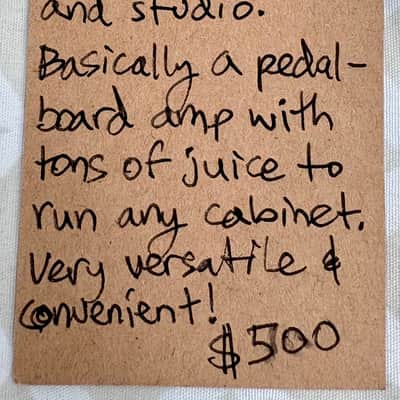 and studio.
Basically a pedal-
board amp with
tons of juice to
run any cabinet.
Very versatile &
convenient!
$500